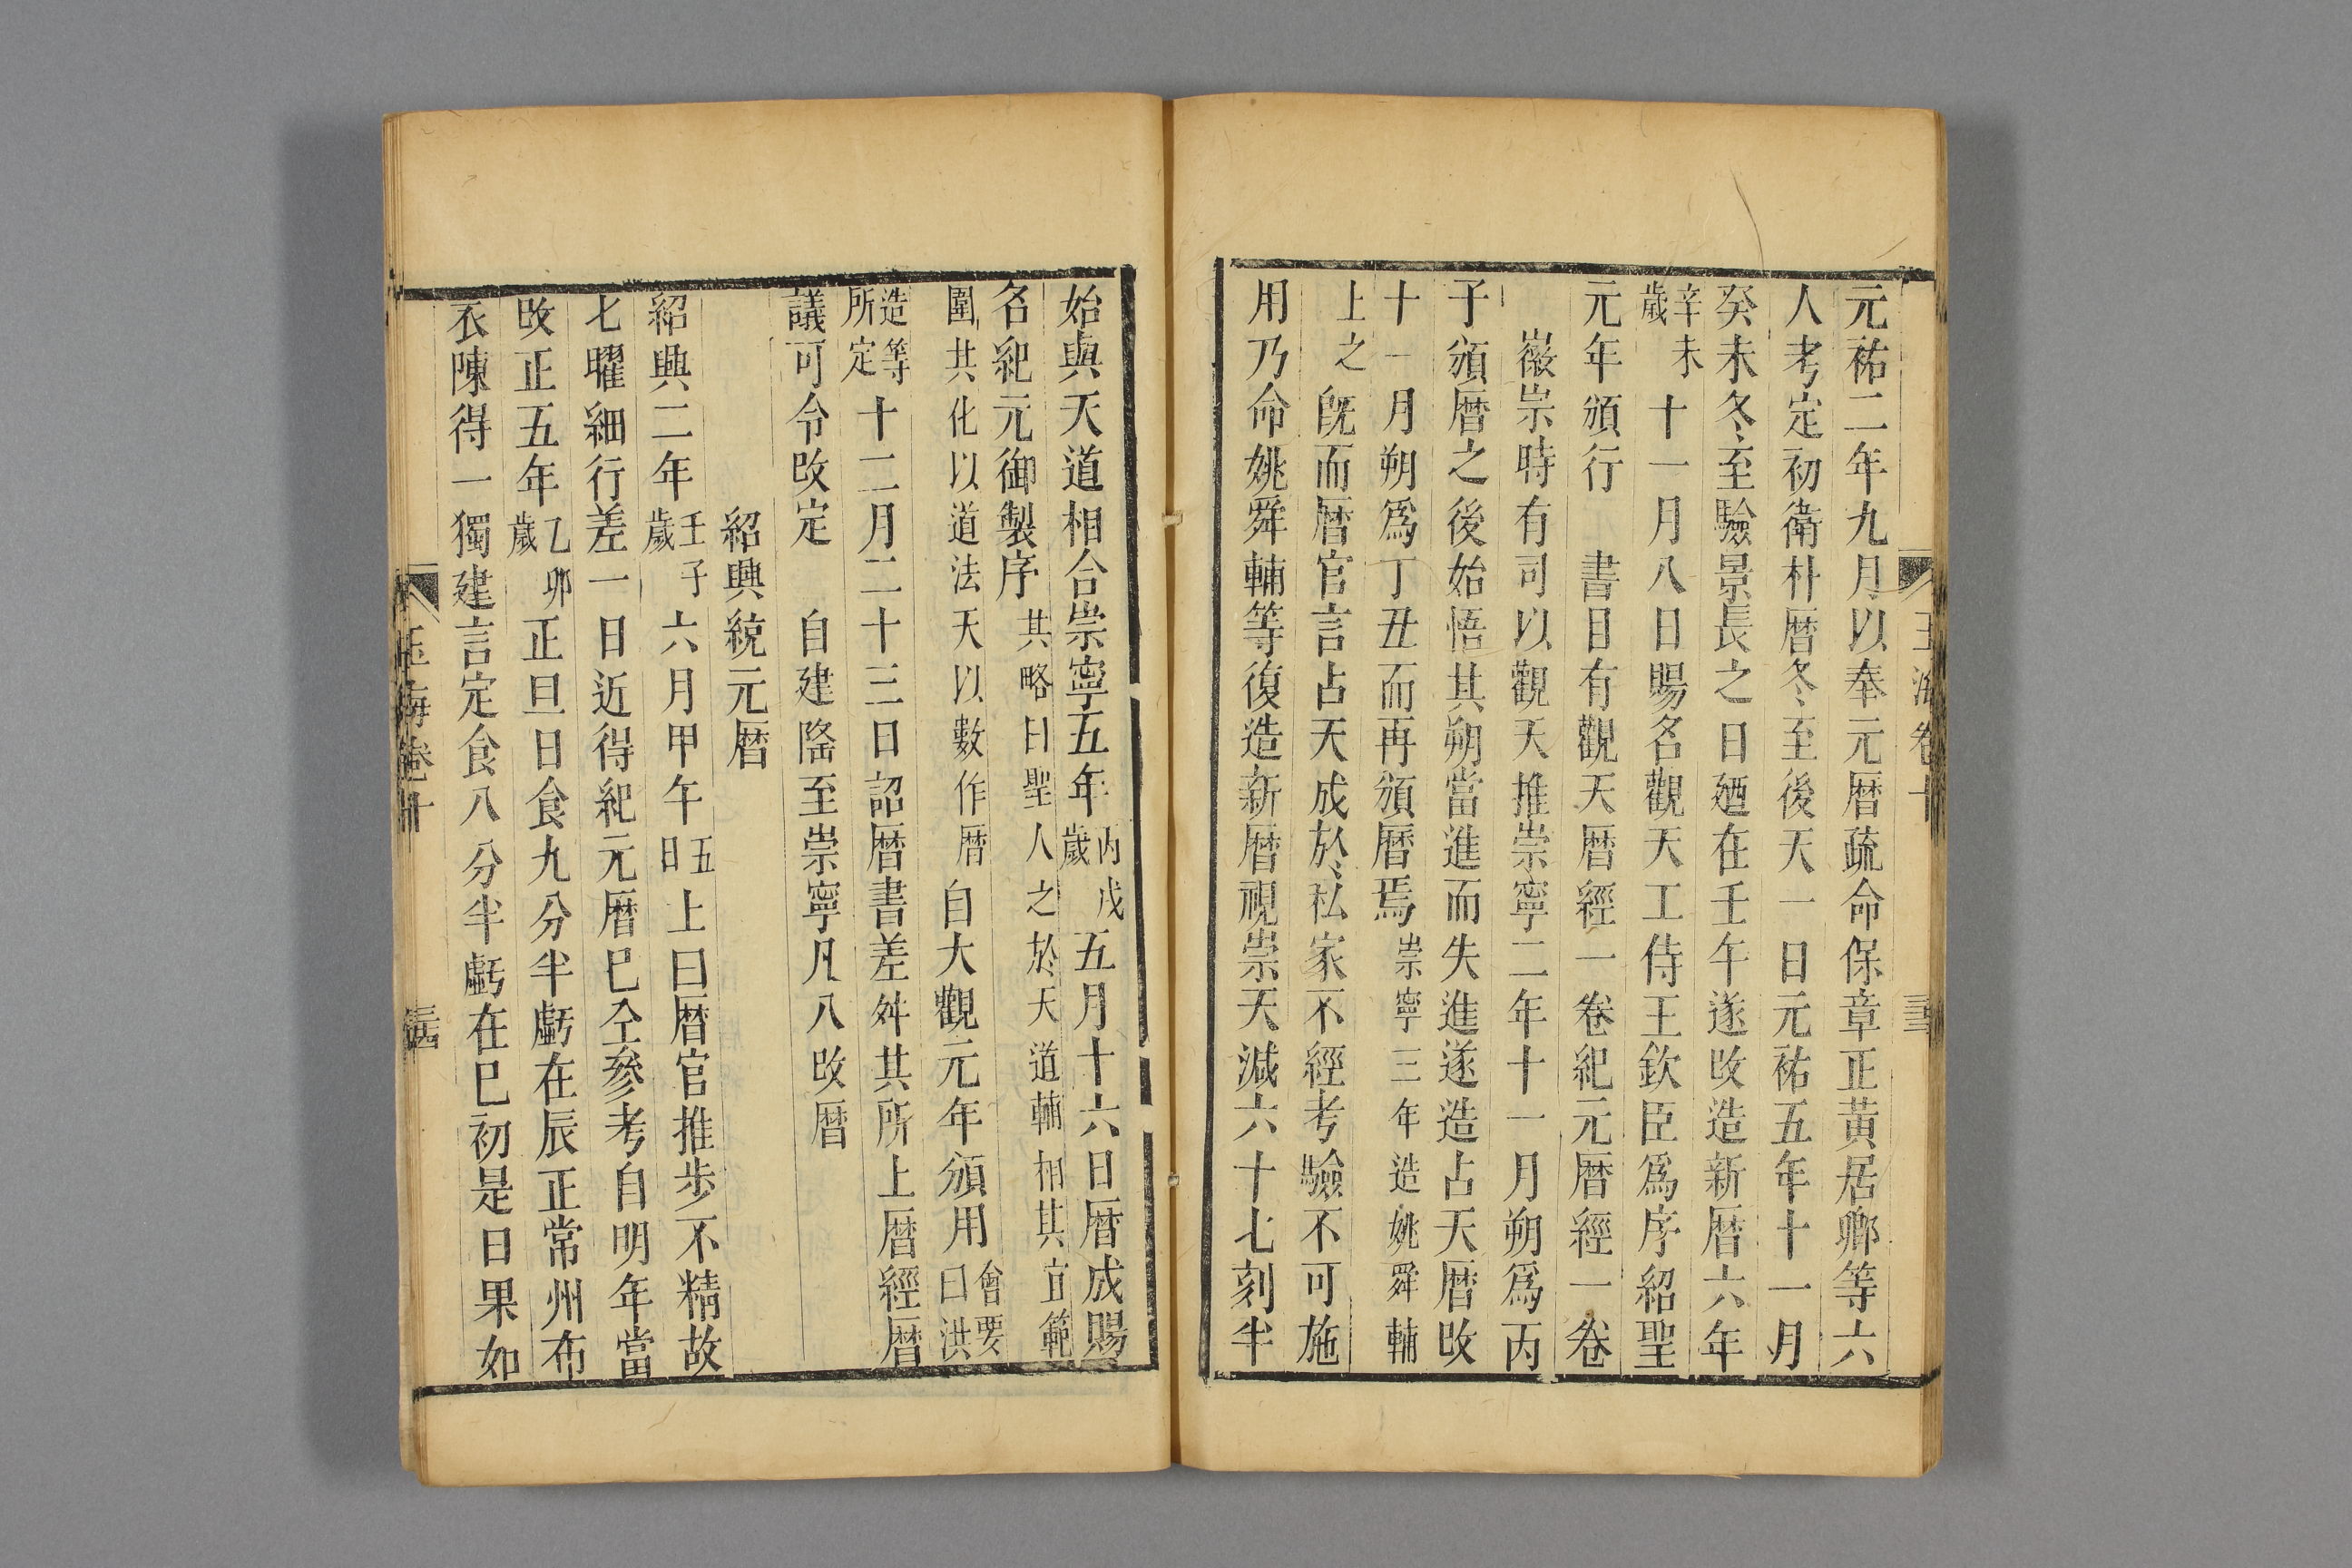 元祐二年九月以奉元暦疏命保章正黃居卿等六
人考定初衛朴暦冬至後天一日元祐五年十一月
癸未冬至驗景長之日廼在壬午遂改造新暦六年
辛未歲十一月八日賜名觀天工侍王欽臣爲序紹聖
元年頒行　書目有觀天暦經一卷紀元暦經一卷
徽崇時有司以觀天推崇寧二年十一月朔爲丙
子頒暦之後始悟其朔當進而失進遂造占天暦改
十一月朔爲丁丑而再頒暦焉崇寧三年造姚舜輔
上之旣而暦官言占天成於私家不經考驗不可施
用乃命姚舜輔等復造新暦視崇天減六十七刻半
始與天道相合崇寧五年丙戌歲五月十六日暦成賜
名紀元御製序其略曰聖人之於天道輔相其宜範
圍其化以道法天以數作暦自大觀元年頒用會要曰洪
造等所定十二月二十三日詔暦書差舛其所上暦經暦
議可令改定　自建隆至崇寧凡八改暦
紹興統元暦
紹興二年壬子歲六月甲午五日上曰暦官推步不精故
七曜細行差一日近得紀元暦已仝參考自明年當
改正五年乙卯歲正旦日食九分半虧在辰正常州布
衣陳得一獨建言定食八分半虧在巳初是日果如
玉海卷十
玉海卷十